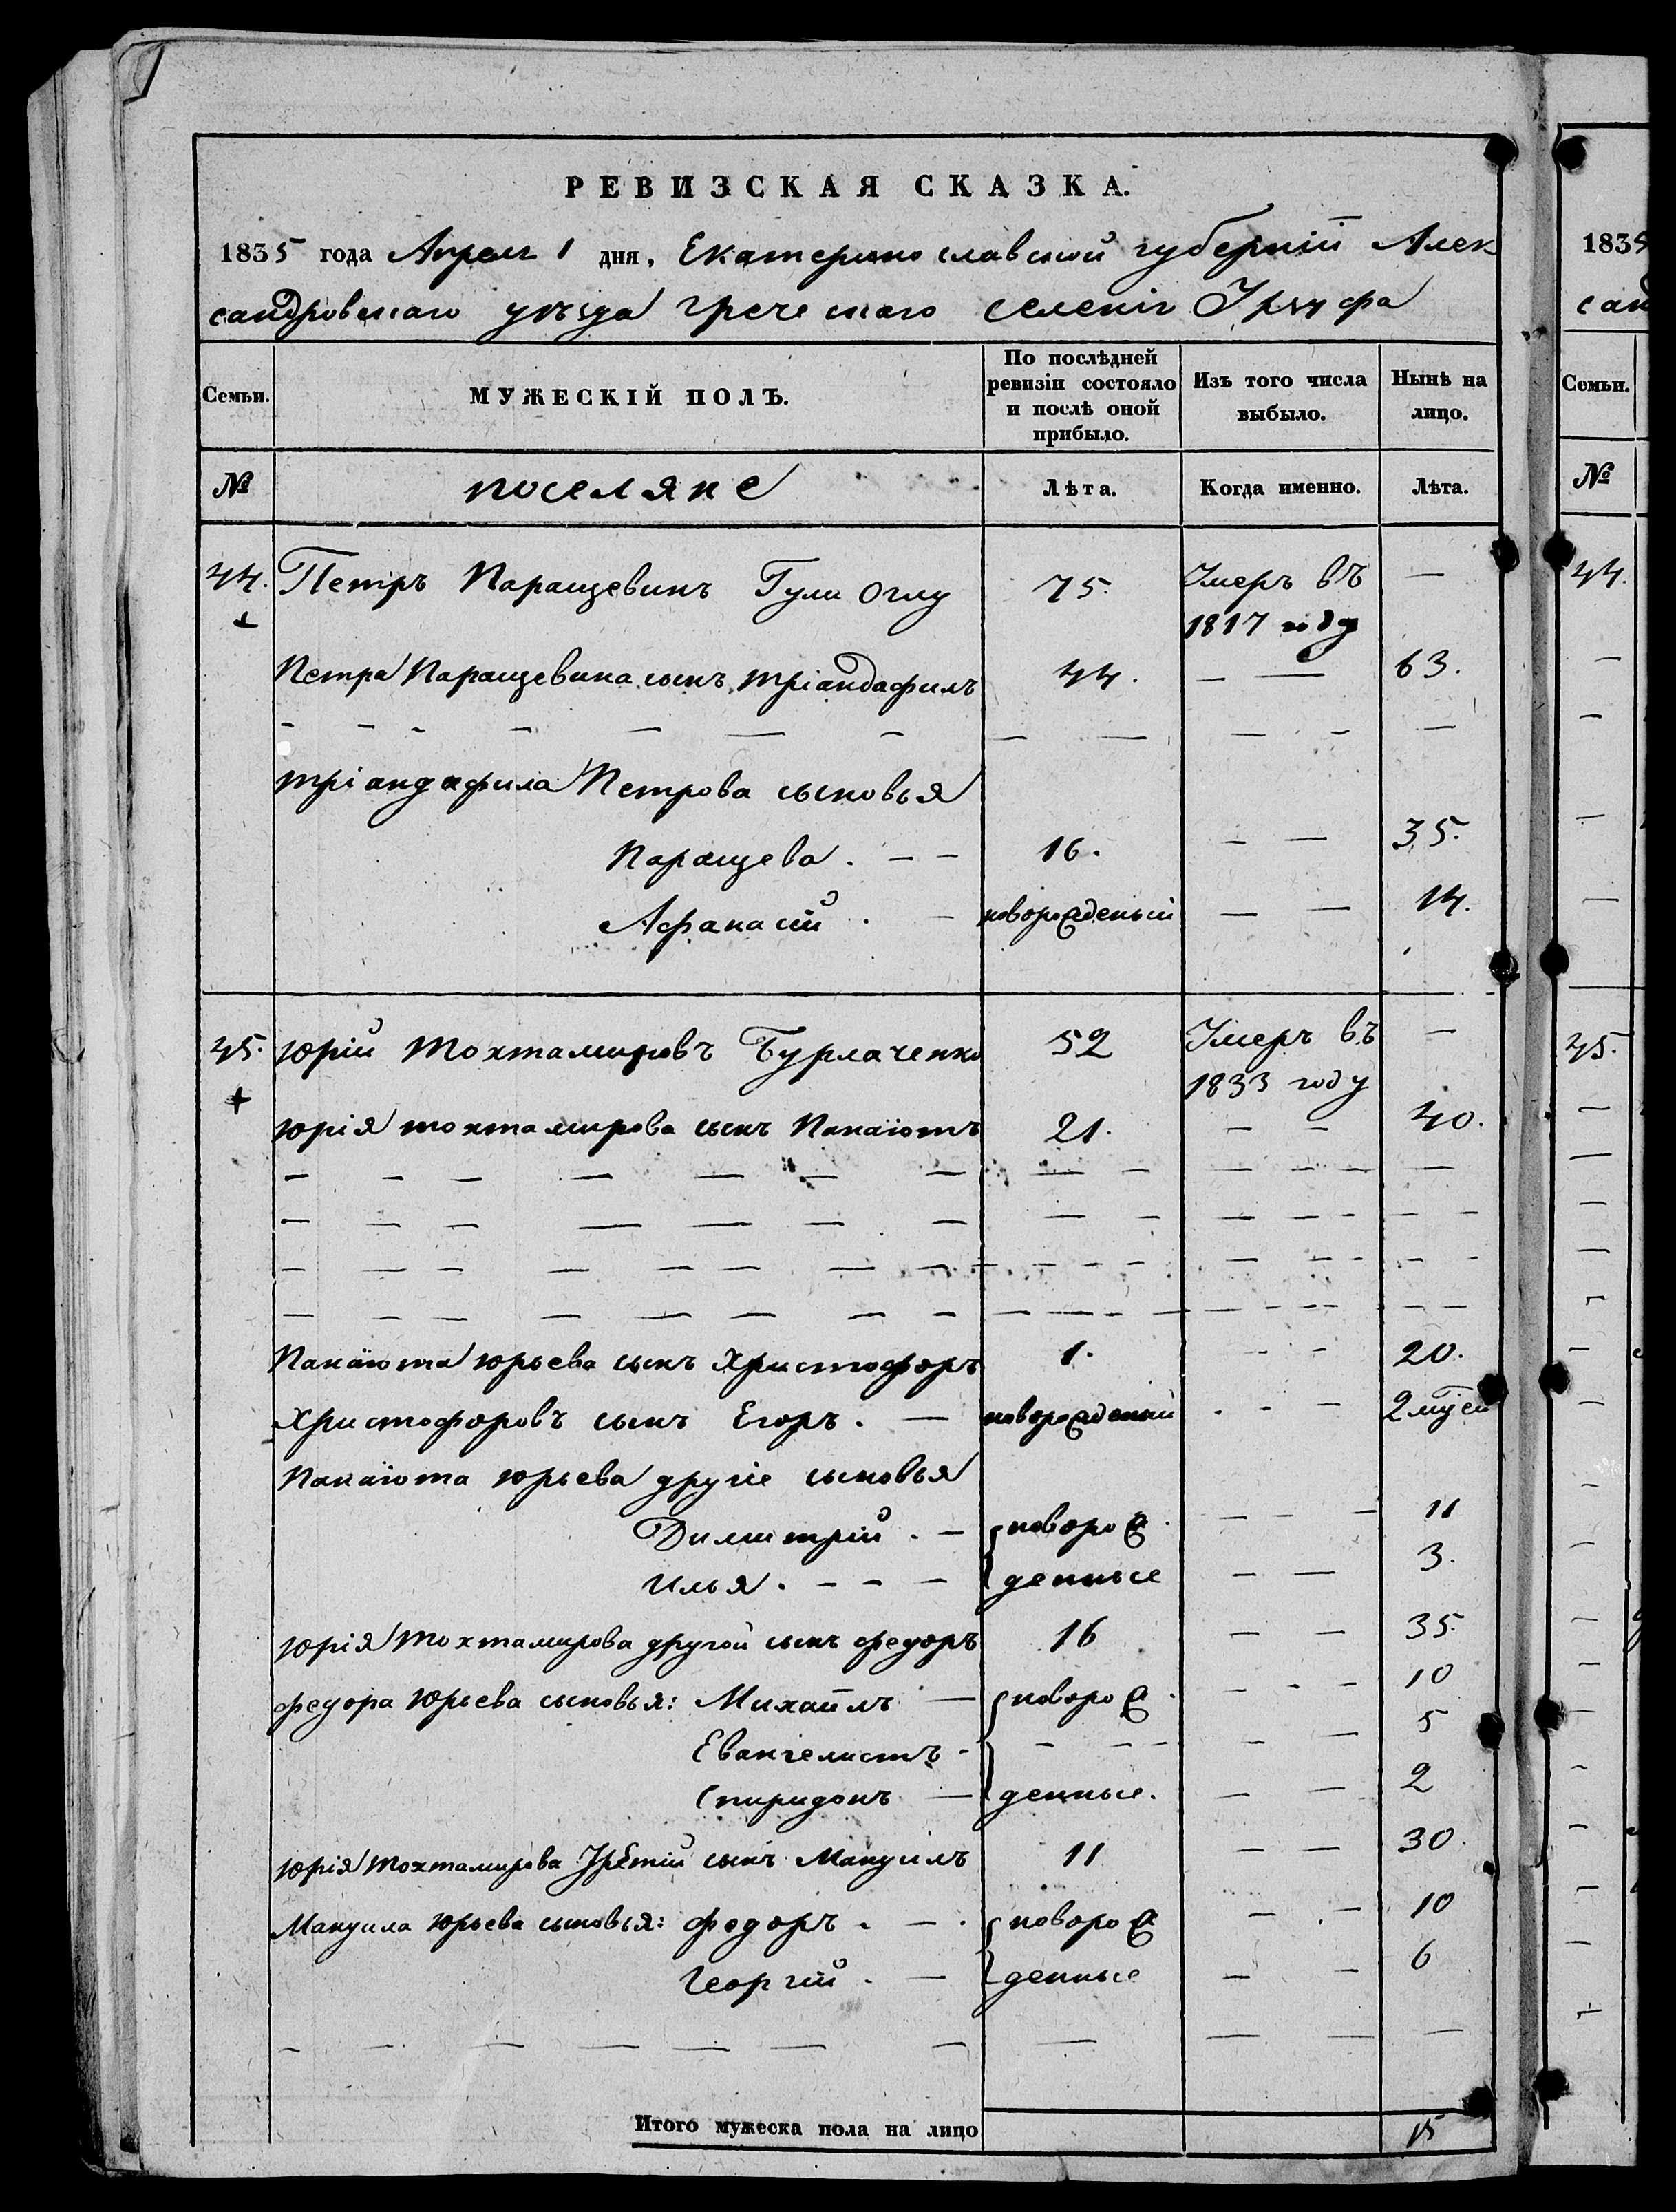 РЕВИЗСКАЯ СКАЗКА.
1835 года Апреля 1 дня, Екатеринославской губерніи Алек
сандровскаго уѣзда греческаго селенія Урзуфа
Семьи. МУЖЕСКІЙ ПОЛЪ. По послѣдней ревизіи состояло и послѣ оной прибыло. Изъ того числа выбыло. Нынѣ на лицо.
№ поселяне Лѣта. Когда именно. Лѣта.
44. Петръ Паращевинъ Гули Оглу 75. Умеръ въ —
1817 году
Петра Паращевина сынъ тріандафилъ 44. — — 63.
тріандафила Петрова сыновья
Паращева. — — 16. — — 35.
Афанасій . — новорожденый — — 14.
45. Юрій Тохтамировъ Бурлаченко 52 Умеръ въ —
1833 году
Юрія тохтамирова сынъ Панаіотъ 21. — — 40.
Панаіота Юрьева сынъ Христофоръ 1. — — 20.
Христофоровъ сынъ Егоръ. — новорожденый . - — 2 мцей
Панаіота Юрьева другіе сыновья
Димитрій . — новорож — — — 11
Илья. - - — денные — — 3.
Юрія Тохтамирова другой сынъ федоръ 16 — — 35.
федора Юрьева сыновья: Михаилъ — новорож - - - 10
Евангелистъ - — — — - — 5
Спиридонъ — денные. — — 2
Юрія Тохтамирова Третій сынъ Мануилъ 11 — — 30.
Мануила Юрьева сыновья: федоръ . — . новорож — . — 10
Георгій . — денные — — 6
Итого мужеска пола на лицо 15
1835
санд
Семьи.
№
44.
45.